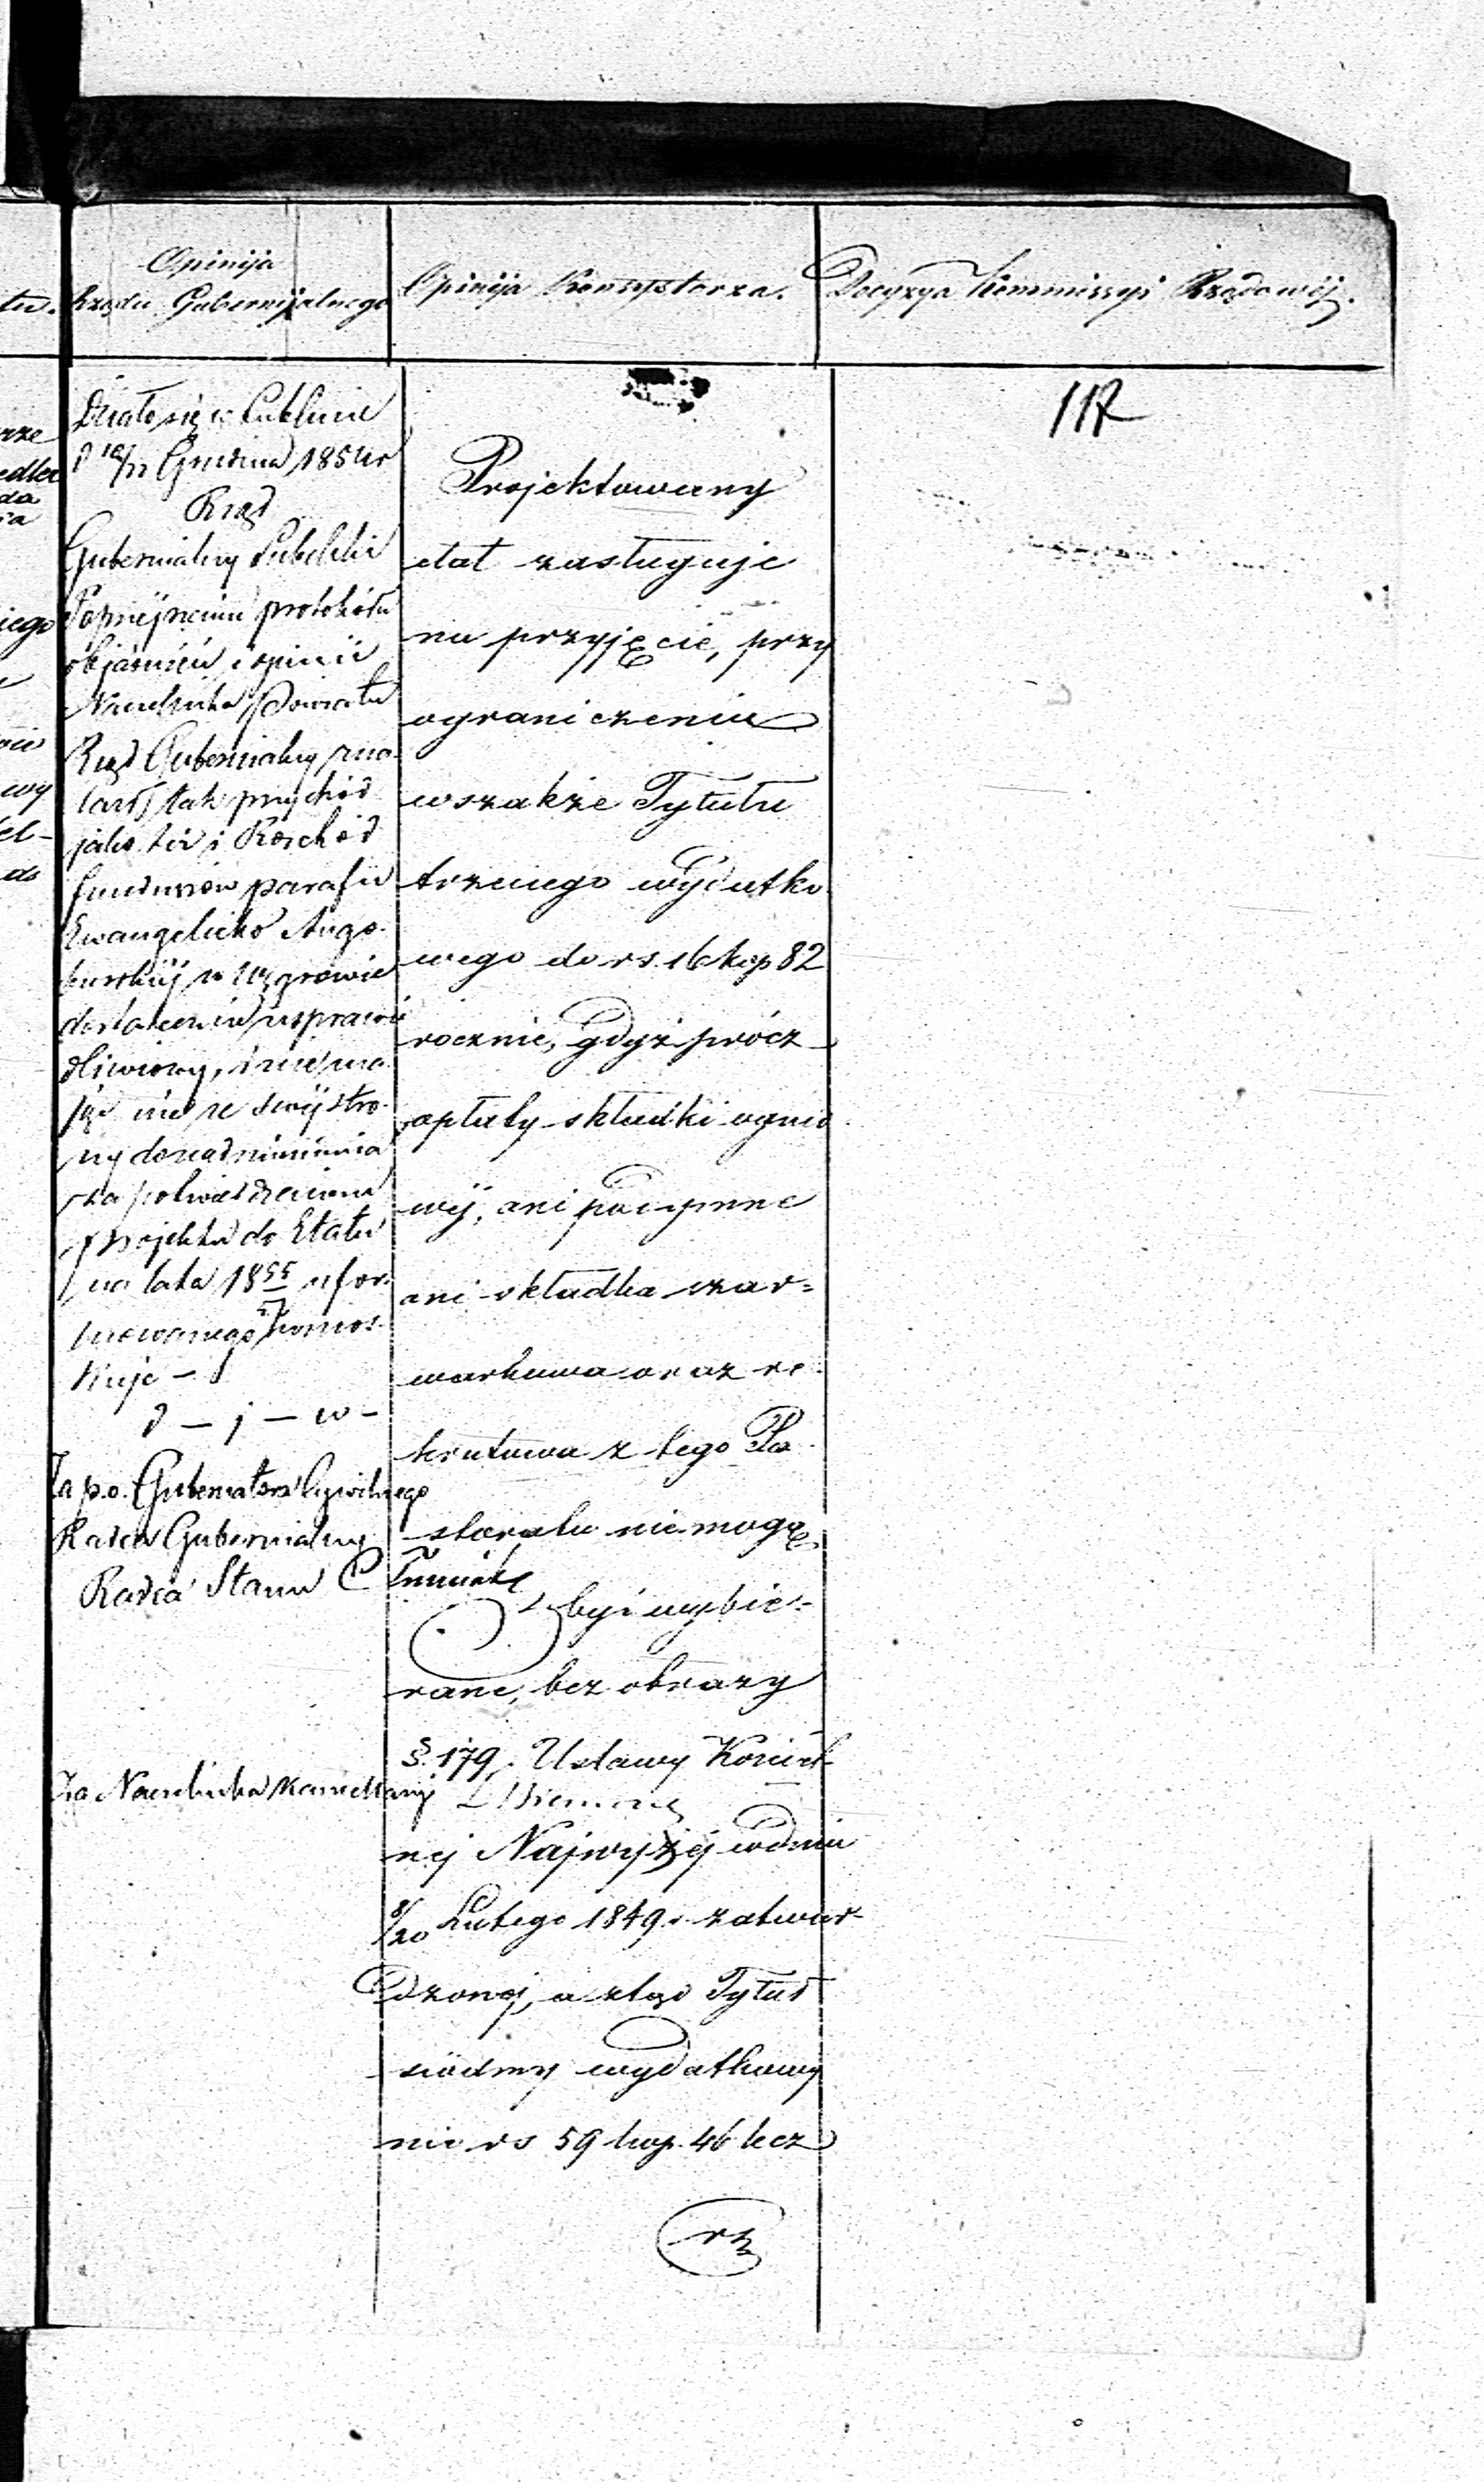 Opinija
Rządu Gubernijalnego
Opinija Konsystorza.
Decyzya Kommissyi Rządowéj.
117
tu.
rze
edler
da
ia
iego
wy
el-
do
Działo się w Lublinie
d 10/22 Grudnia 1854 r
Rząd
Gubernialny Lubelski
Po przejrzeniu protokółu
objaśnień i opinii
Naczelnika Powiatu
Rząd Gubernialny zna-
lazłszy tak przychód
jako też i Rozchód
funduszów parafii
Ewangelicko Augs-
burskiéj w Węgrowie
dostatecznie usprawie
dliwiony, i nie ma-
jąc nic ze swéj stro-
ny do nadmienienia
za potwierdzeniem
projektu do Etatu
na lata 1855/57 ufor-
mowanego wnios-
kuje -
d - j - w -
Za p.o. Gubernatora Cywilnego
Radca Gubernialny
Radca Stanu
Za Naczelnika Kancellaryi
Projektowany
etat zasługuje
na przyjęcie, przy
ograniczeniu
wszakże Tytułu
trzeciego wydatko
wego do rs. 16 kop 82
rocznie, gdyż prócz
opłaty składki ognio
wéj, ani podymne
ani składka szar-
warkowa oraz re-
krutowa z tego Pa-
storatu nie mogą
być wybie-
rane, bez obrazy
§. 179. Ustawy Kościel-
nej Najwyżéj w dniu
8/20 Lutego 1849 r. zatwier-
dzonej, a ztąd Tytuł
siódmy wydatkowy
nie rs 59 kop. 46 lecz
rs